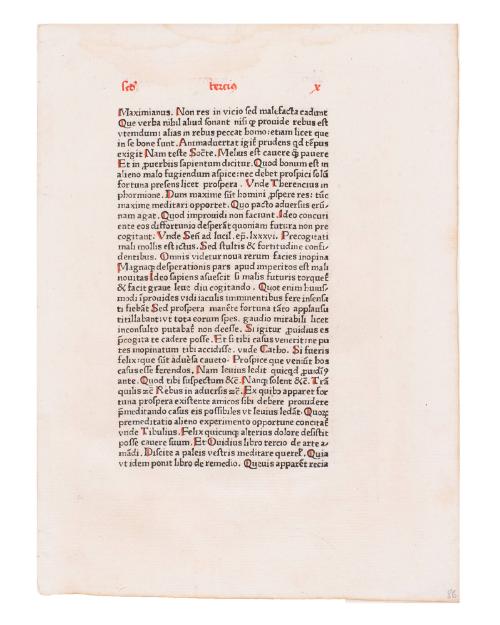 tercius x
Maximianus. Non res in vicio sed malefacta cadunt
Que verba nihil aliud sonant nisi qƺ provide rebus est
vtendum: alias in rebus peccat homo: etiam licet que
in se bone sunt. Animaduertat igit prudens qd tēpus
exigit Nam teste Socr̄e. Melius est cauere qƺ pauere
Et in ꝓuerbiis sapientum dicitur. Quod bonum est in
alieno malo fugiendum aspice: nec debet prospici solū
fortuna presens licet prospera. Vnde Therencius in
phormione. Dum maxime sūt homini ꝓspere res: tūc
maxime meditari opportet. Quo pacto aduersus erū-
nam agat. Quod improuidi non faciunt. Ideo concuti
ente eos diffortunio desperāt quoniam futura non pre
cogitant. Vnde Señ ad lucil. ep̄. lxxxvi. Precogitati
mali mollis est ictus. Sed stultis & fortitudine confi-
dentibus. Omnis videtur noua rerum facies inopina
Magnaqƺ desperationis pars apud imperitos est mali
nouitas Ideo sapiens asuescit si malis futuris torquet
& facit graue leue diu cogitando. Quot enim huius-
modi īprouides vidi iaculis imminentibus fere insensa
ti fiebāt Sed prospera manēte fortuna tāto applausu
titillabant: vt tota eorum spes. gaudio mirabili licet
inconsulto putabat non deesse. Si igitur ꝓuidius es
p̄cogita te cadere posse. Et si tibi casus venerit: ne pu
tes inopinatum tibi accidisse. vnde Catho. Si fueris
felix: que sūt aduersa caueto. Prospice que veniūt hos
casus esse ferendos. Nam leuius ledit quicqd ꝓuidimꝰ
ante. Quod tibi suspectum &c̄. Nanqƺ solent &c̄. Trā
quilis &c̄ Rebus in aduersis &c̄. Ex quibo apparet for
tuna prospera existente amicos sibi debere prouidere
p̄meditando casus eis possibiles vt leuius ledāt. Quorƺ
premeditatio alieno experimento opportune concitat
vnde Tibulius. Felix quicunqƺ alterius dolore desistit
posse cauere suum. Et Ouidius libro tercio de arte a-
mādi. Discite a paleis vestris meditare querel. Quia
vt idem ponit libro de remedio. Queuis apparēt recia
86